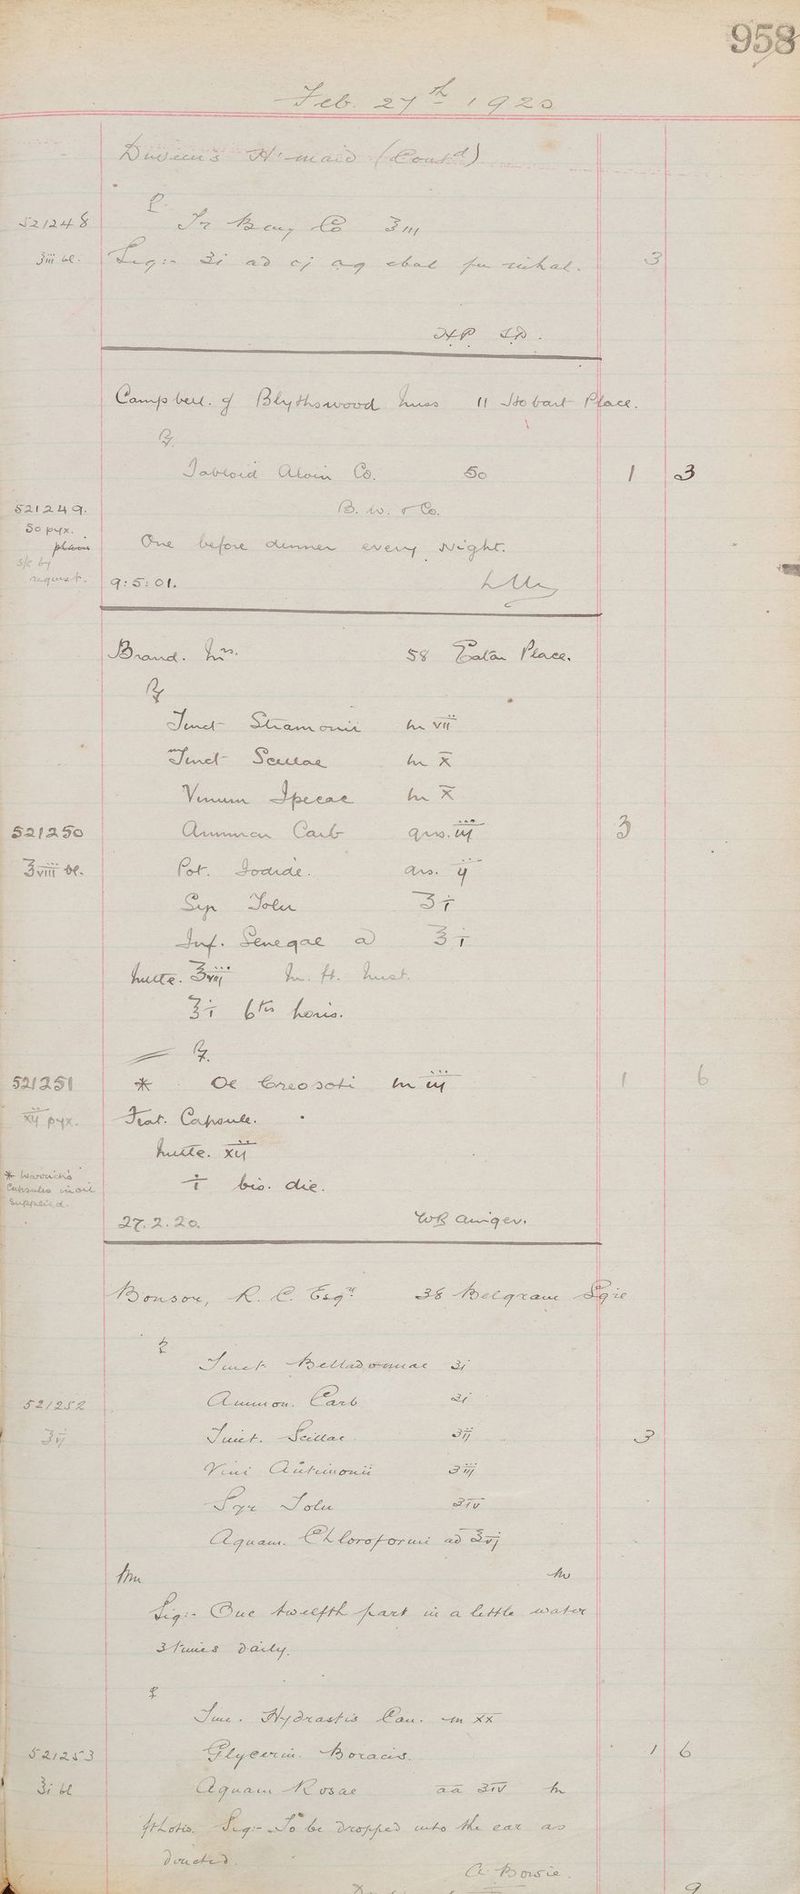 958
Feb. 27th 1920
H'maid (Contd)
℞
521248 Tr Benz Co ℥iii
℥iii bl. Sig:- ʒi ad oj aq ebul pro inhal. 3
H.P. S.D.
Campbell. of Blythswood Miss 11 Hobart Place.
℞
Tabloid Aloin Co. 50 1 3
521249. B. W. & Co.
50 pyx.
One before dinner every night.
s/c by
request. 9:5:01.
Brand. Mrs. 58 Eaton Place.
℞
Tinct Stramonii m vii
Tinct Scillae m x
Vinum Ipecac m x
521250 Ammon Carb grs. iij 3
℥viii bl. Pot. Iodide. grs. ij
Syr Tolu ʒi
Inf. Senegae ad ℥i
Mitte. ℥viij M. ft. mist.
℥i 6tis horis.
℞.
521251 * Ol Creosoti m iij 1 6
xij pyx. Fiat. Capsule.
Mitte. xij
* Warrick's
Capsules in oil
supplied.
i bis. die.
27.2.20.
Bonsor, R. C. Esqre 38 Belgrave Sqre
℞
Tinct Belladonnae ʒi
521252 Ammon. Carb ʒi
℥vj Tinct. Scillae ʒij 3
Vini Antimonii ʒiij
Syr Tolu ʒiv
Aquam. Chloroformi ad ℥vj
m
Sig:- One twelfth part in a little water
3 times daily.
℞
Tinc. Hydrastis Can. m xx
521253 Glycerin. Boracis. 1 6
℥i bl Aquam Rosae aa ʒiv m
ft lotio. Sig:- To be dropped into the ear as
directed.
A. Bowie.
9